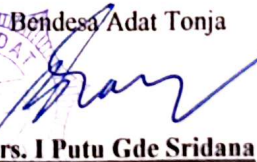 Bendesa Adat Tonja
rs. I Putu Gde Sridana